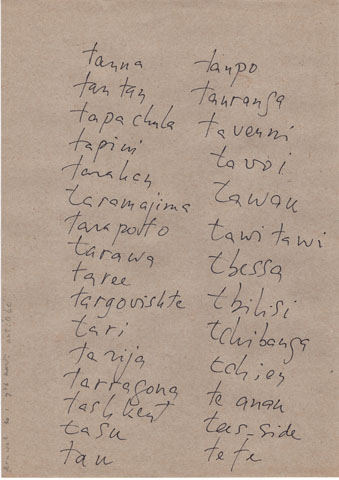 tanna
tan tan
tapachula
tapini
tarakan
taramajima
tarapoto
tarawa
taree
targovishte
tari
tarija
tarragona
tashkent
tasu
tau
taupo
tauranga
taveuni
tavoi
tawau
tawi tawi
tbessa
tbilisi
tchibanga
tchien
te anau
tees-side
tefe